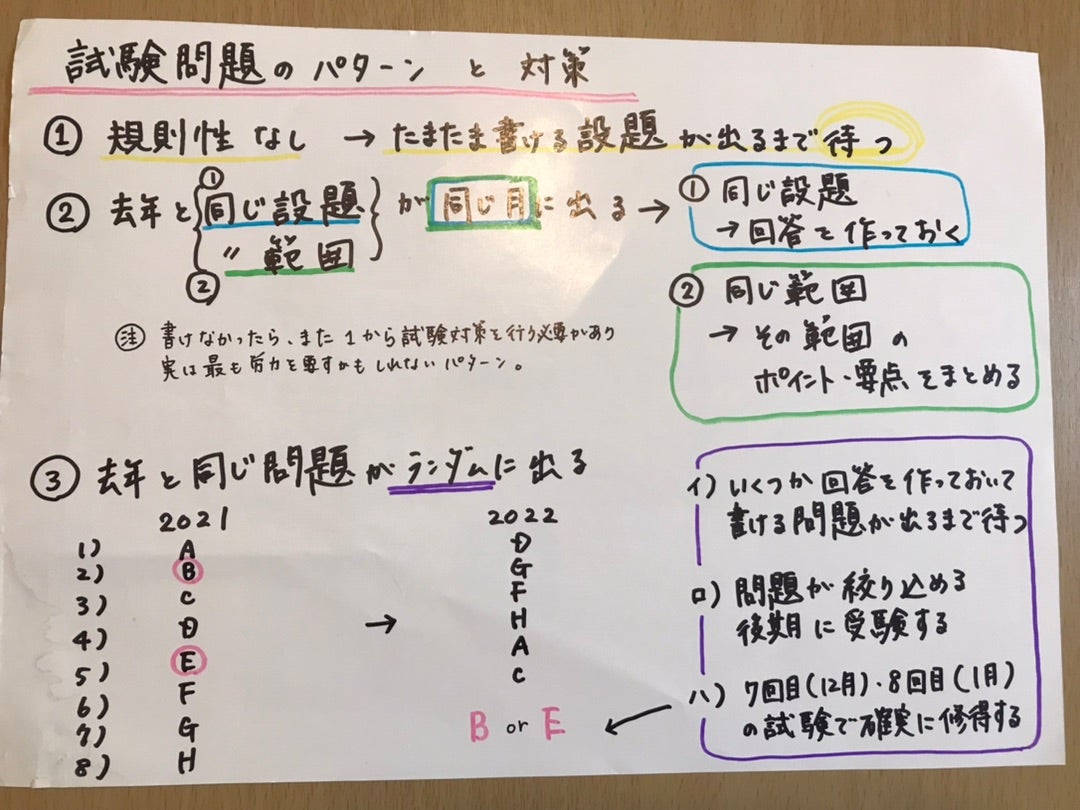 試験問題のパターン と 対策
① 規則性なし → たまたま書ける設題が出るまで待つ
② 去年と{①同じ設題 ②〃範囲}が同じ月に出る→
① 同じ設題
→回答を作っておく
② 同じ範囲
→ その範囲の
ポイント・要点をまとめる
注 書けなかったら、また1から試験対策を行う必要があり
実は最も労力を要すかもしれないパターン。
③ 去年と同じ問題がランダムに出る
2021
1) A
2) B
3) C
4) D
5) E
6) F
7) G
8) H
→
2022
D
G
F
H
A
C
B or E
イ) いくつか回答を作っておいて
書ける問題が出るまで待つ
ロ) 問題が絞り込める
後期に受験する
ハ) 7回目(12月)・8回目(1月)
の試験で確実に修得する